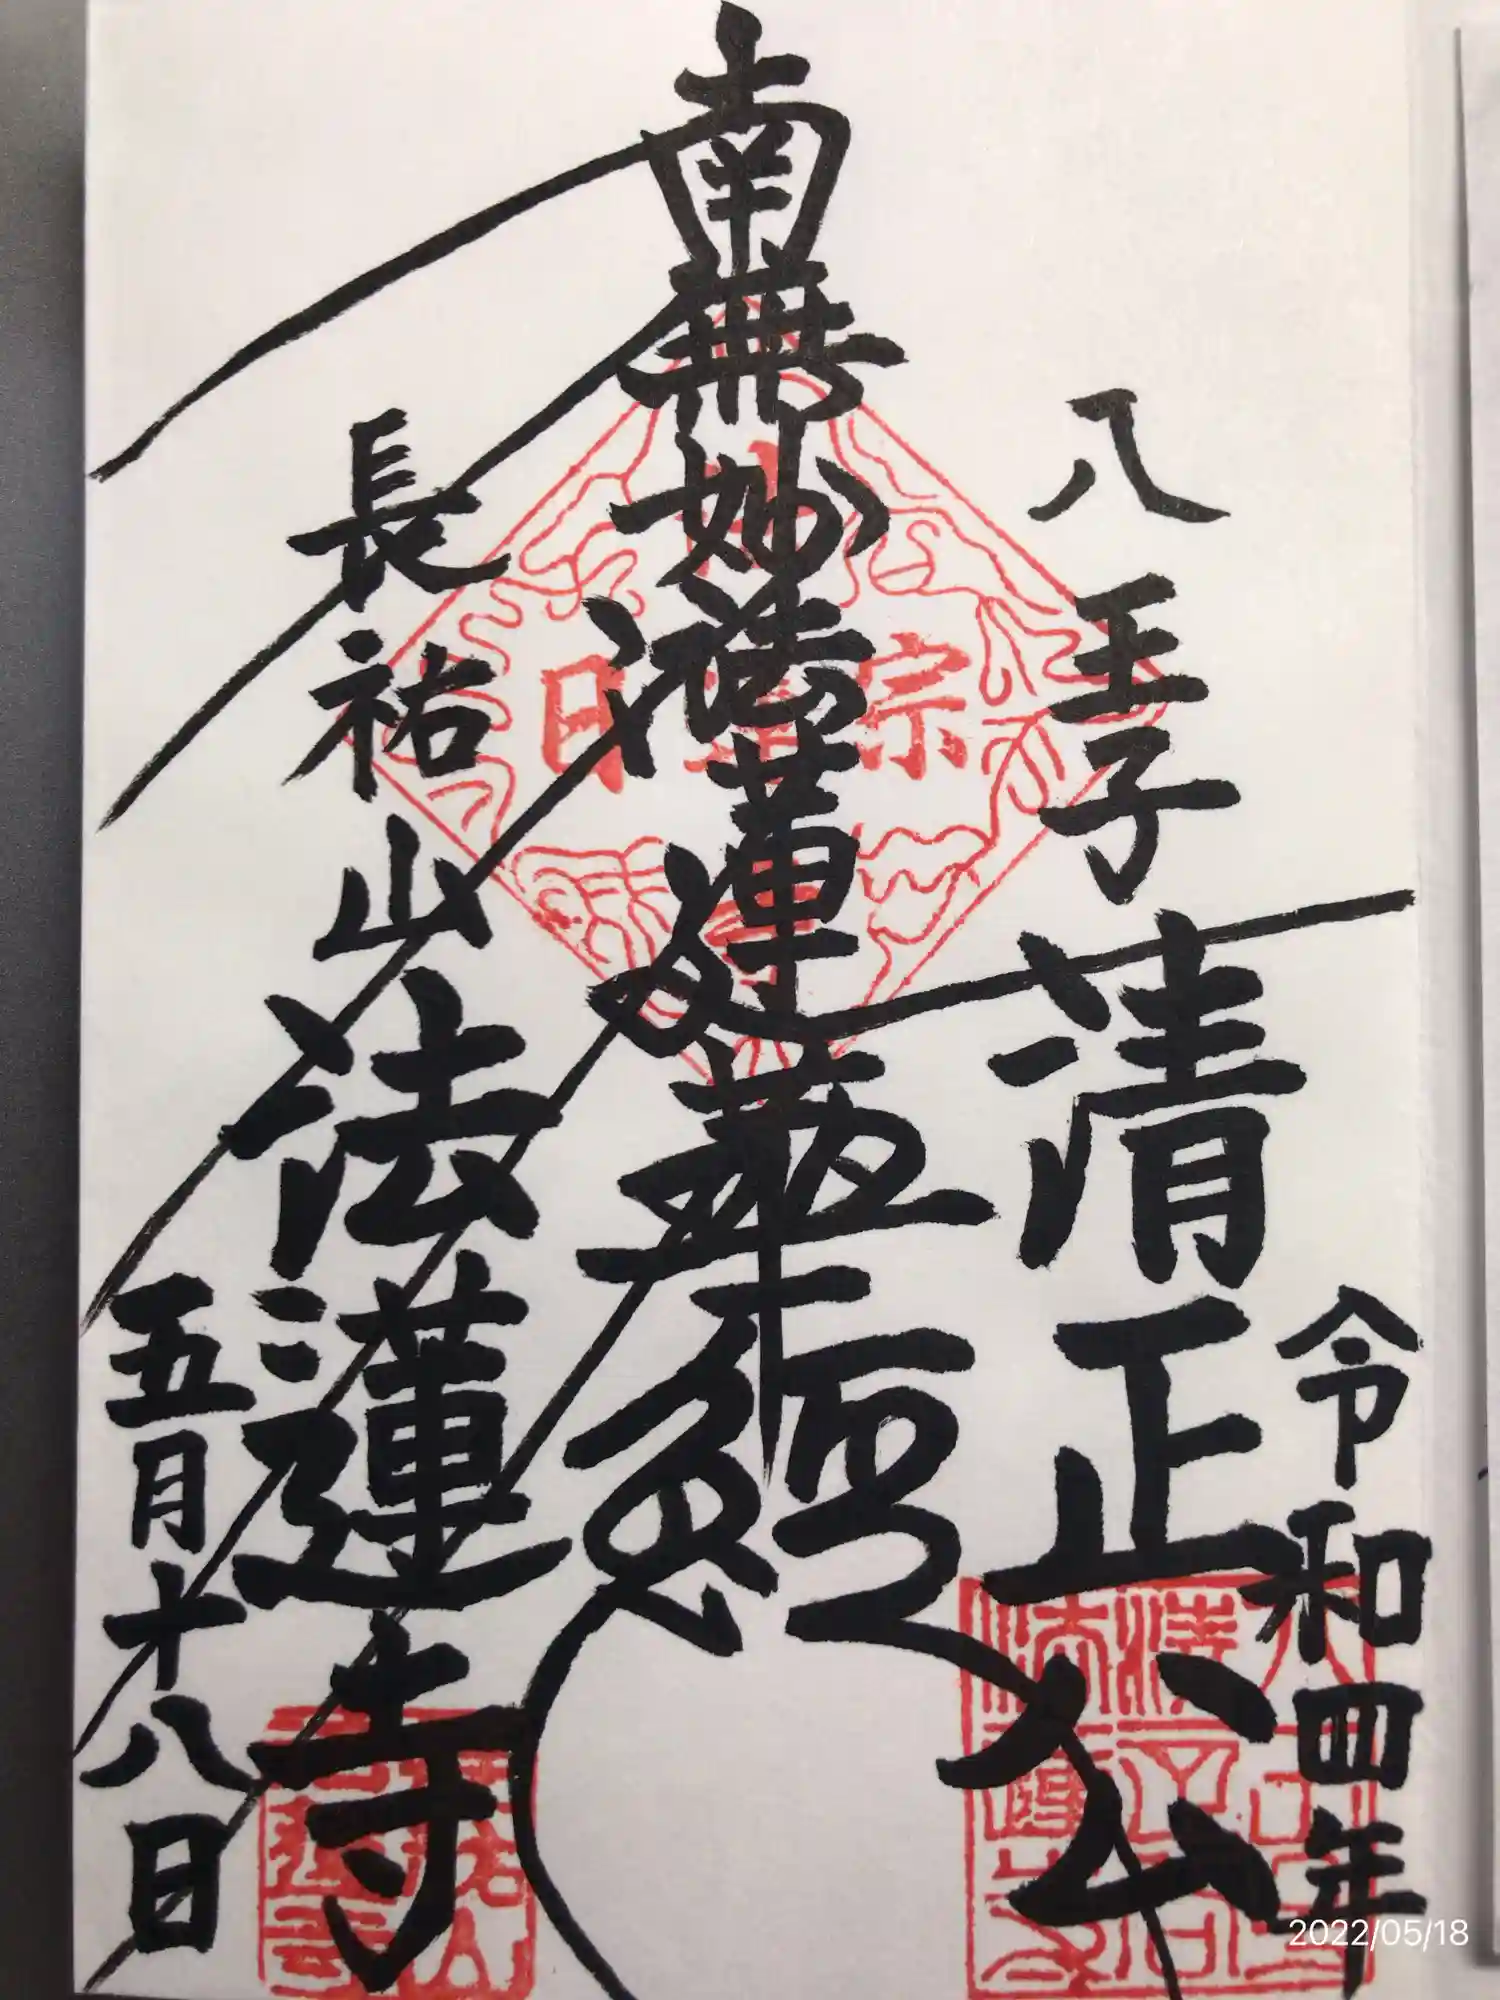 令和四年
八王子 清正公
南無妙法蓮華經
長祐山 法蓮寺
五月十八日
日蓮宗
2022/05/18